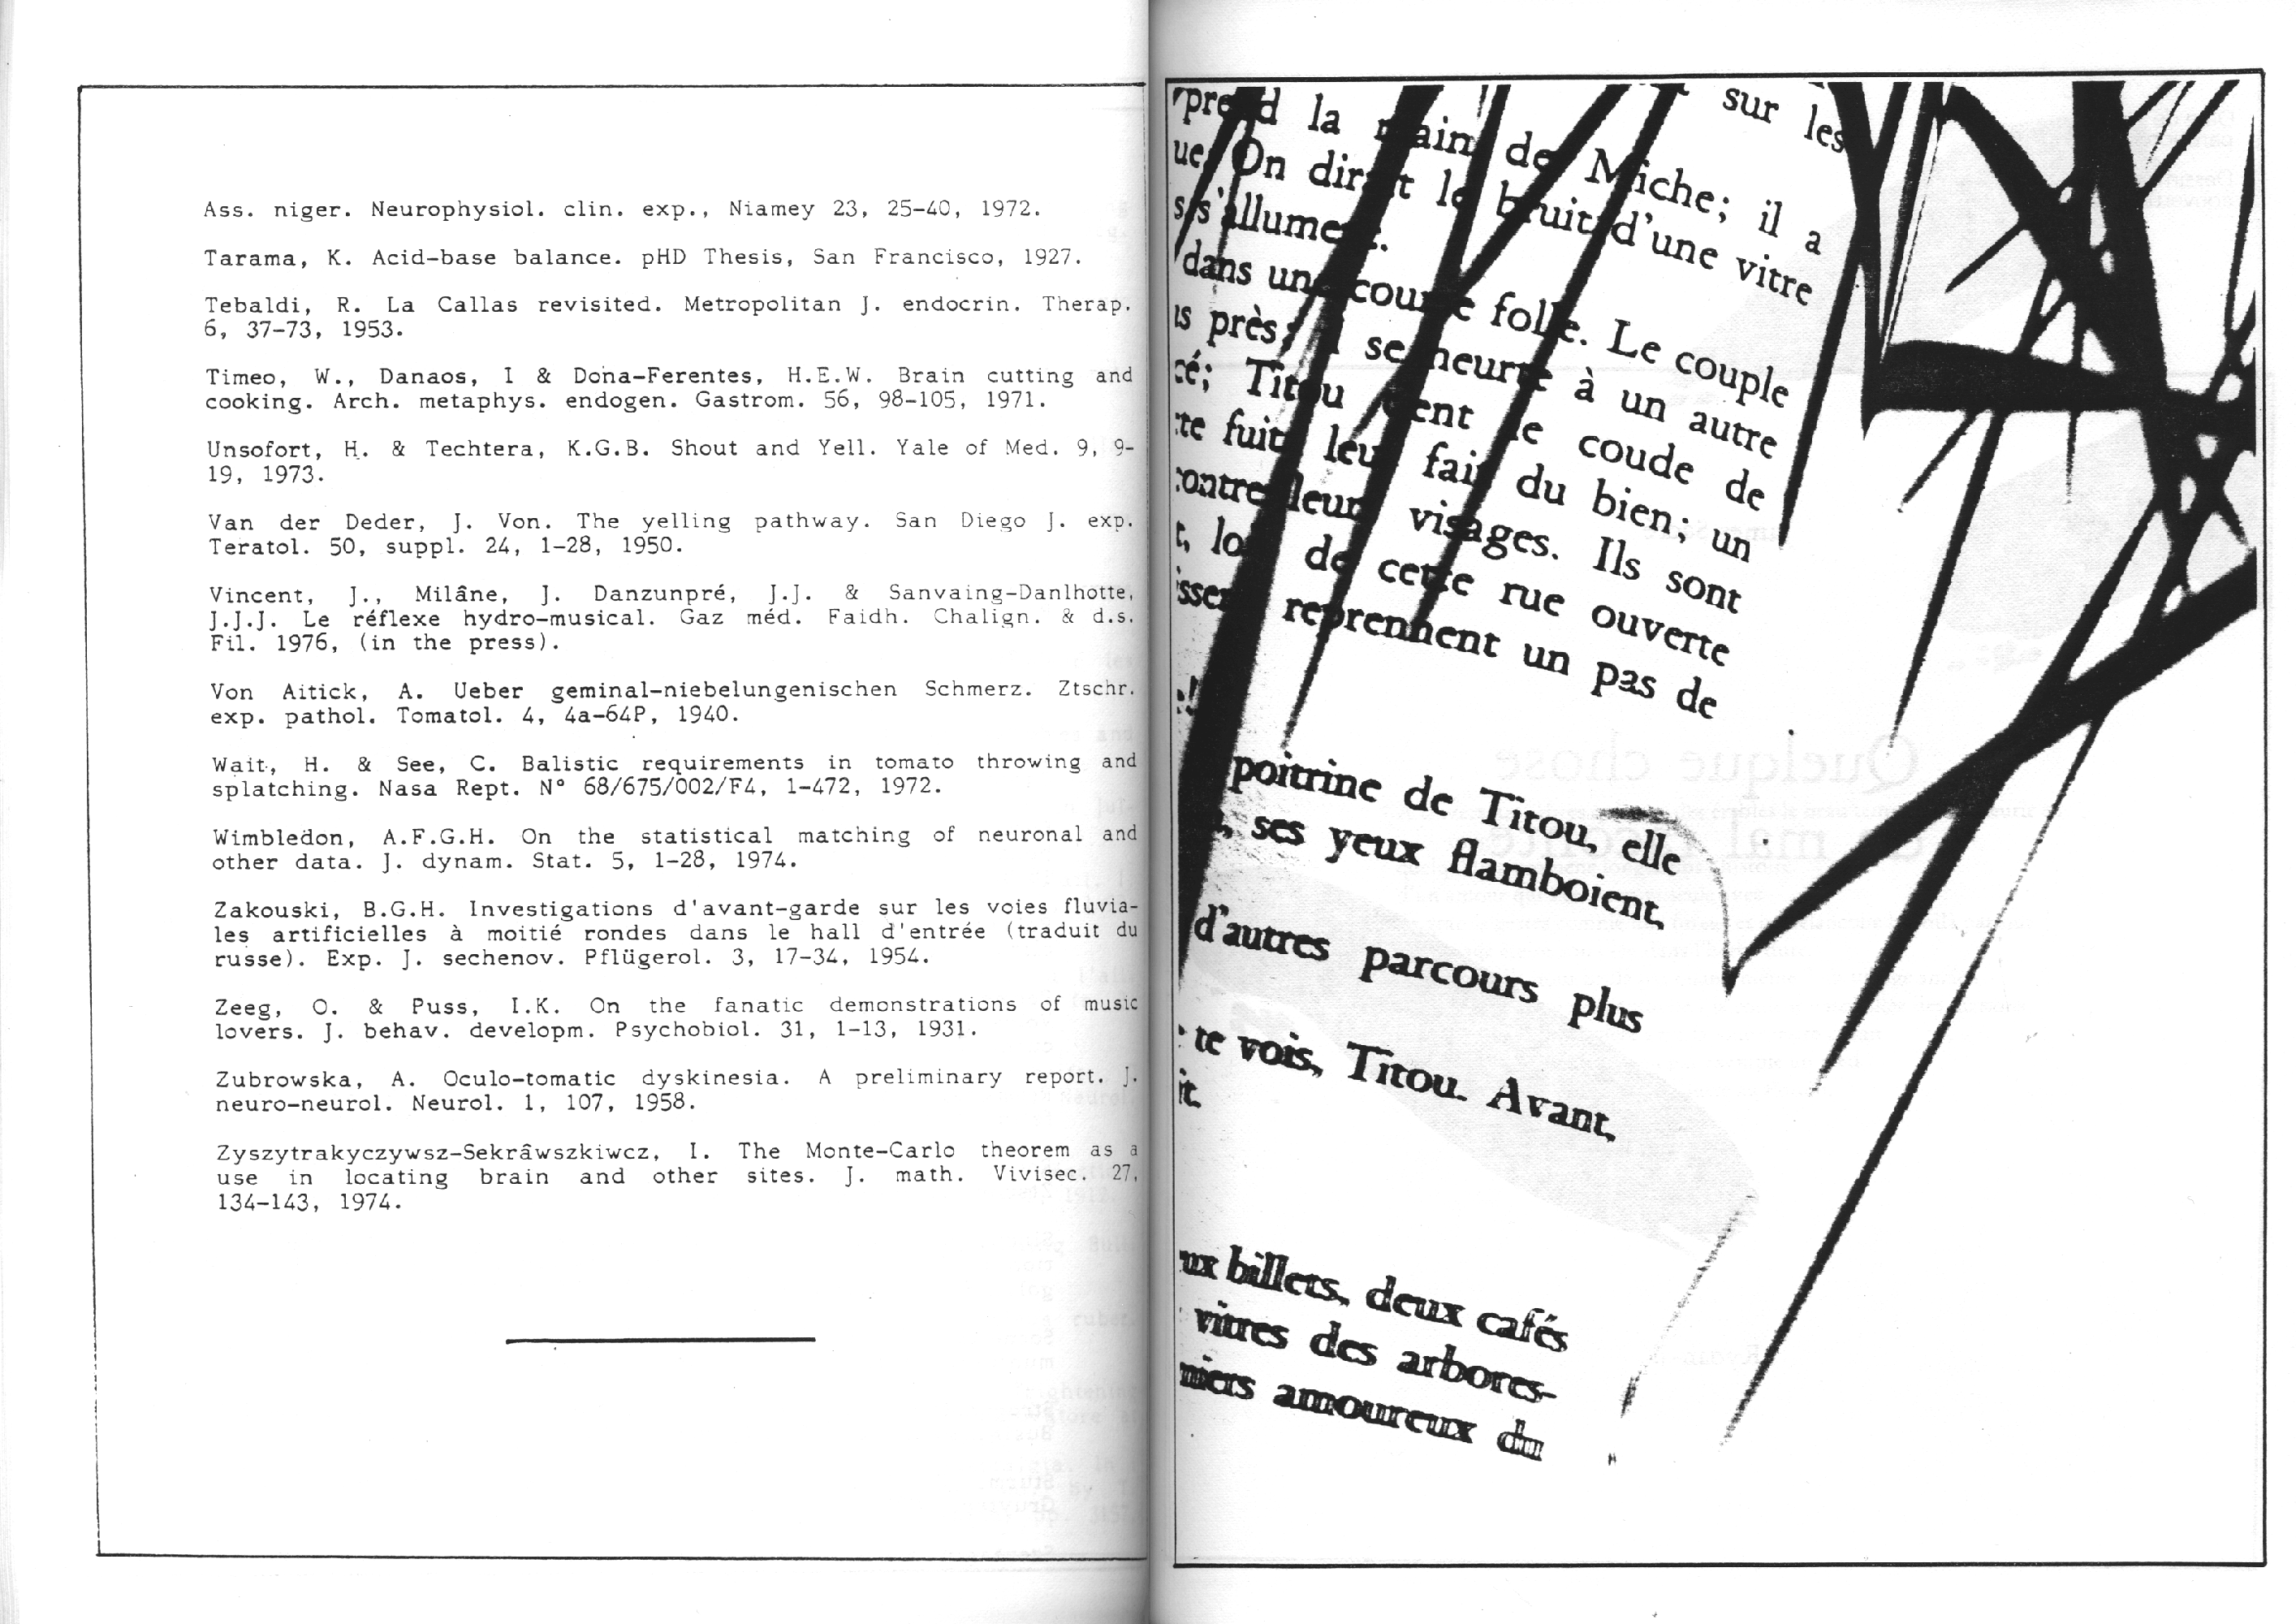 Ass. niger. Neurophysiol. clin. exp., Niamey 23, 25-40, 1972.
Tarama, K. Acid-base balance. pHD Thesis, San Francisco, 1927.
Tebaldi, R. La Callas revisited. Metropolitan J. endocrin. Therap.
6, 37-73, 1953.
Timeo, W., Danaos, I & Dona-Ferentes, H.E.W. Brain cutting and
cooking. Arch. metaphys. endogen. Gastrom. 56, 98-105, 1971.
Unsofort, H. & Techtera, K.G.B. Shout and Yell. Yale of Med. 9, 9-
19, 1973.
Van der Deder, J. Von. The yelling pathway. San Diego J. exp.
Teratol. 50, suppl. 24, 1-28, 1950.
Vincent, J., Milâne, J. Danzunpré, J.J. & Sanvaing-Danlhotte,
J.J.J. Le réflexe hydro-musical. Gaz méd. Faidh. Chalign. & d.s.
Fil. 1976, (in the press).
Von Aitick, A. Ueber geminal-niebelungenischen Schmerz. Ztschr.
exp. pathol. Tomatol. 4, 4a-64P, 1940.
Wait, H. & See, C. Balistic requirements in tomato throwing and
splatching. Nasa Rept. N° 68/675/002/F4, 1-472, 1972.
Wimbledon, A.F.G.H. On the statistical matching of neuronal and
other data. J. dynam. Stat. 5, 1-28, 1974.
Zakouski, B.G.H. Investigations d'avant-garde sur les voies fluvia-
les artificielles à moitié rondes dans le hall d'entrée (traduit du
russe). Exp. J. sechenov. Pflügerol. 3, 17-34, 1954.
Zeeg, O. & Puss, I.K. On the fanatic demonstrations of music
lovers. J. behav. developm. Psychobiol. 31, 1-13, 1931.
Zubrowska, A. Oculo-tomatic dyskinesia. A preliminary report. J.
neuro-neurol. Neurol. 1, 107, 1958.
Zyszytrakyczywsz-Sekrâwszkiwcz, I. The Monte-Carlo theorem as a
use in locating brain and other sites. J. math. Vivisec. 27,
134-143, 1974.
sur les
prend la main de Miche; il a
ue. On dirait le bruit d'une vitre
s s'allument.
dans une course folle. Le couple
us près; il se heurte à un autre
cé; Titou tient le coude de
te fuite leur fait du bien; un
contre leurs visages. Ils sont
t, loin de cette rue ouverte
issent, reprennent un pas de
poitrine de Titou, elle
ses yeux flamboient,
d'autres parcours plus
te vois, Titou. Avant,
it.
ux billets, deux cafés
vitres des arbores-
miers amoureux du